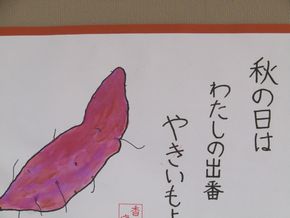 秋の日は
わたしの出番
やきいもよ